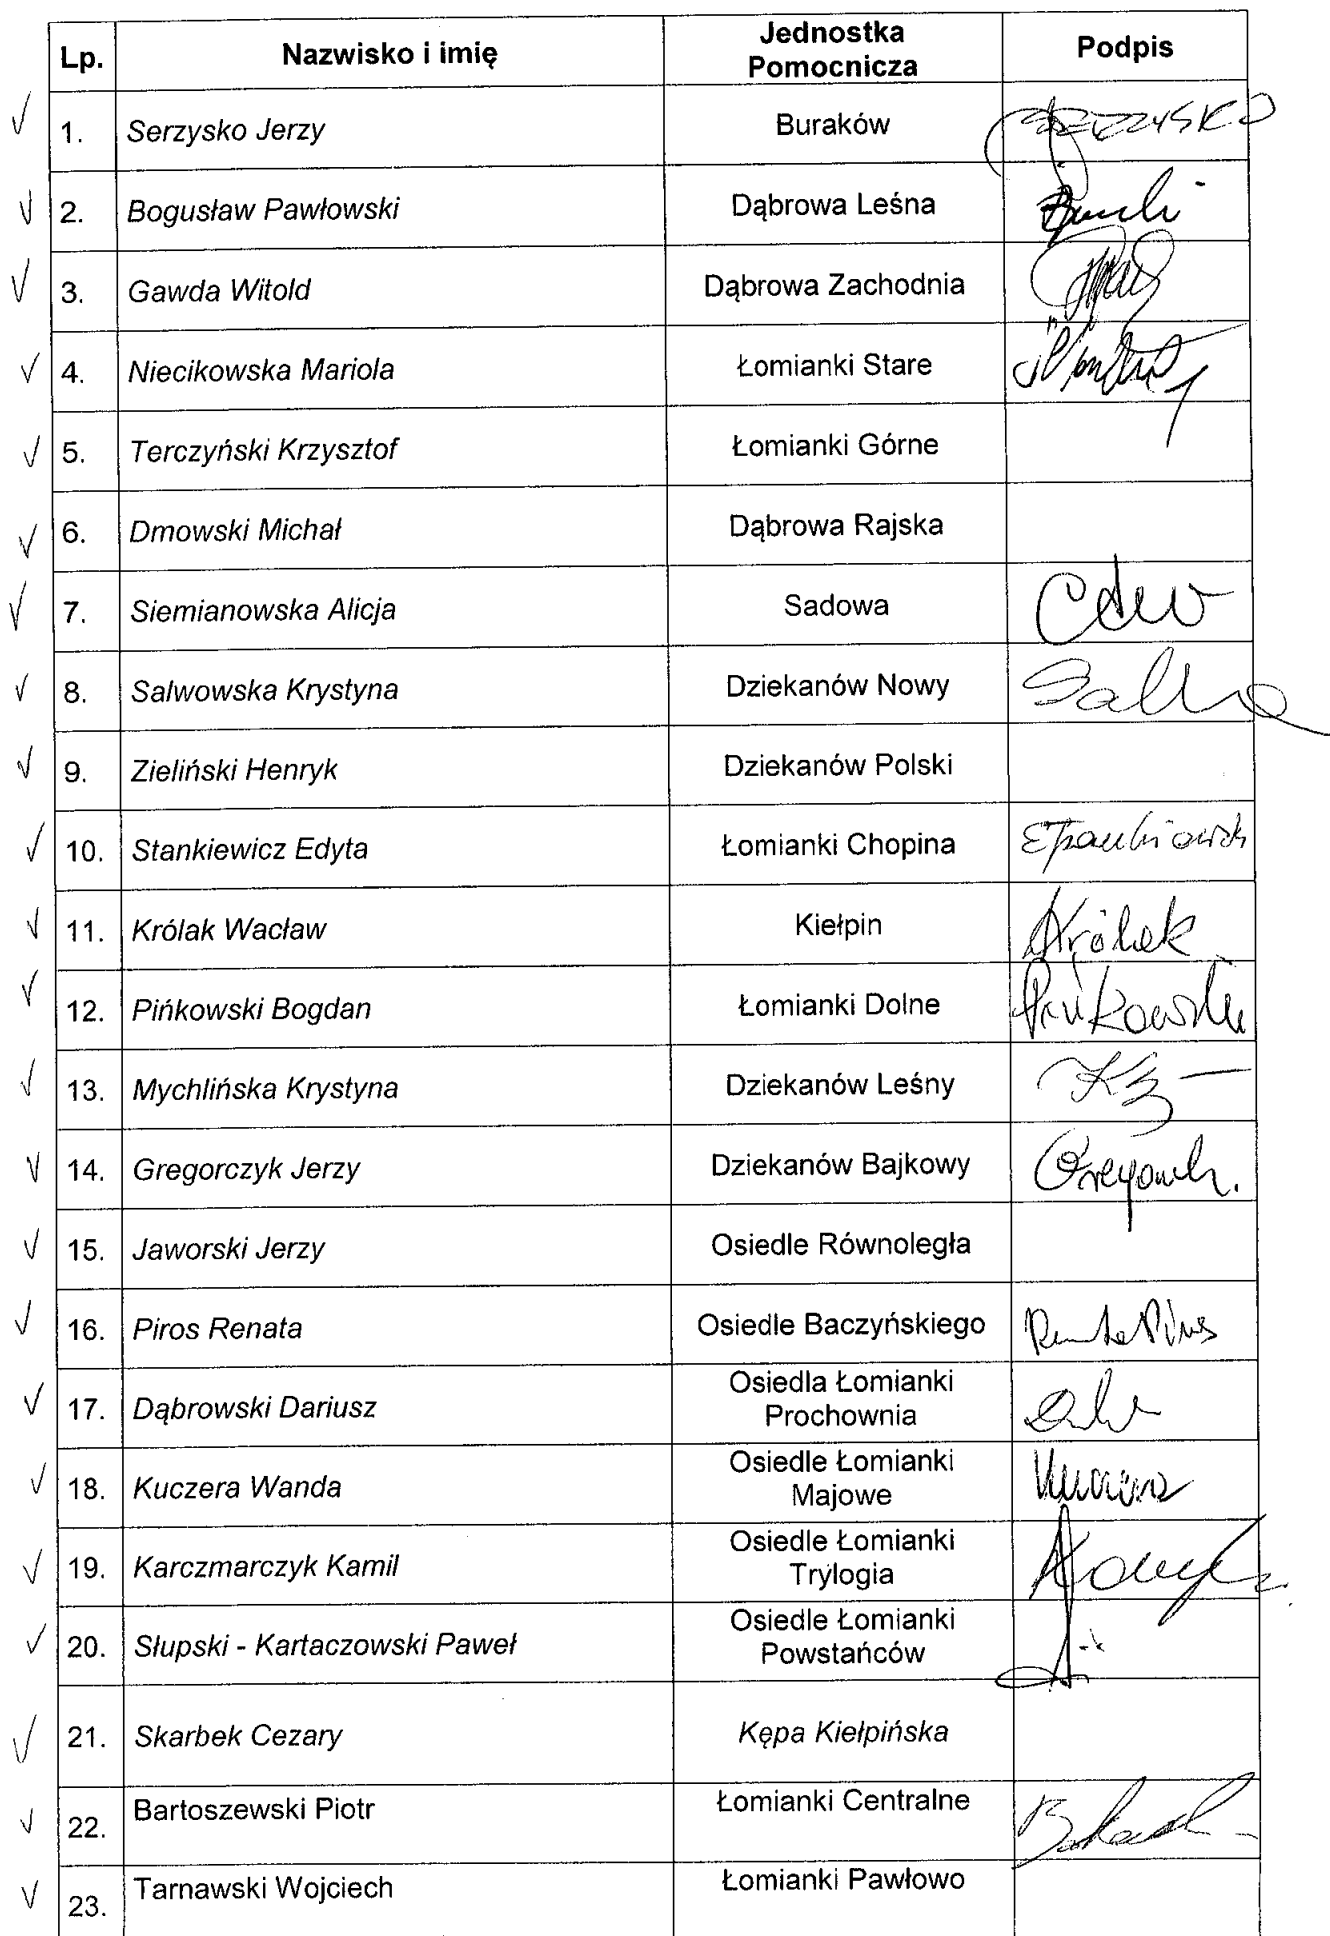 Lp. Nazwisko i imię Jednostka Pomocnicza Podpis
1. Serzysko Jerzy Buraków SERZYSKO
2. Bogusław Pawłowski Dąbrowa Leśna
3. Gawda Witold Dąbrowa Zachodnia
4. Niecikowska Mariola Łomianki Stare
5. Terczyński Krzysztof Łomianki Górne
6. Dmowski Michał Dąbrowa Rajska
7. Siemianowska Alicja Sadowa
8. Salwowska Krystyna Dziekanów Nowy
9. Zieliński Henryk Dziekanów Polski
10. Stankiewicz Edyta Łomianki Chopina
11. Królak Wacław Kiełpin Królak
12. Pińkowski Bogdan Łomianki Dolne Pińkowski
13. Mychlińska Krystyna Dziekanów Leśny
14. Gregorczyk Jerzy Dziekanów Bajkowy
15. Jaworski Jerzy Osiedle Równoległa
16. Piros Renata Osiedle Baczyńskiego Renata Piros
17. Dąbrowski Dariusz Osiedla Łomianki
Prochownia
18. Kuczera Wanda Osiedle Łomianki
Majowe
19. Karczmarczyk Kamil Osiedle Łomianki
Trylogia
20. Słupski - Kartaczowski Paweł Osiedle Łomianki
Powstańców
21. Skarbek Cezary Kępa Kiełpińska
22. Bartoszewski Piotr Łomianki Centralne
23. Tarnawski Wojciech Łomianki Pawłowo